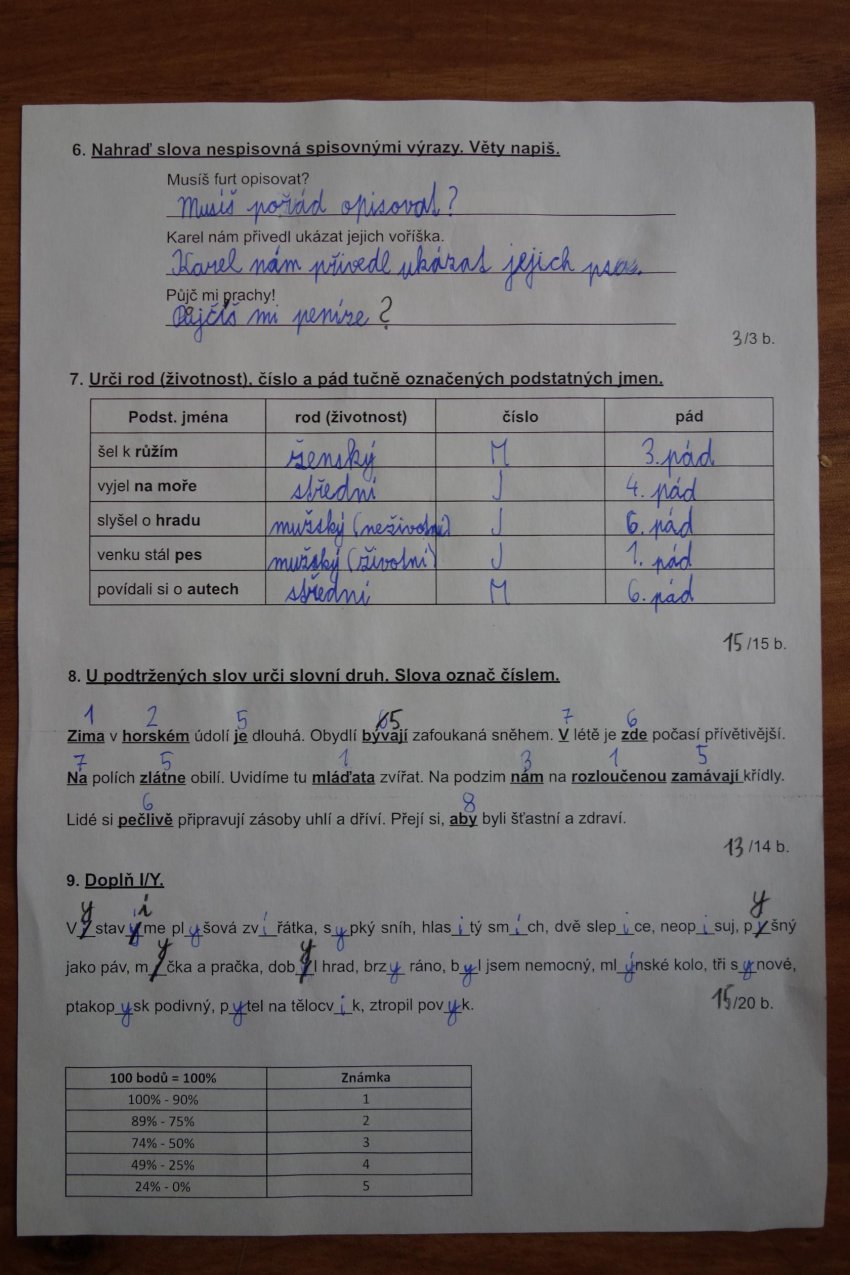 6. Nahraď slova nespisovná spisovnými výrazy. Věty napiš.
Musíš furt opisovat?
Musíš pořád opisovat?
Karel nám přivedl ukázat jejich voříška.
Karel nám přivedl ukázat jejich psa.
Půjč mi prachy!
Půjčíš mi peníze?
3/3 b.
7. Urči rod (životnost), číslo a pád tučně označených podstatných jmen.
Podst. jména rod (životnost) číslo pád
šel k růžím ženský M 3. pád
vyjel na moře střední J 4. pád
slyšel o hradu mužský (neživotní) J 6. pád
venku stál pes mužský (životní) J 1. pád
povídali si o autech střední M 6. pád
15/15 b.
8. U podtržených slov urči slovní druh. Slova označ číslem.
1 2 5 5 7 6
Zima v horském údolí je dlouhá. Obydlí bývají zafoukaná sněhem. V létě je zde počasí přívětivější.
7 5 1 3 1 5
Na polích zlátne obilí. Uvidíme tu mláďata zvířat. Na podzim nám na rozloučenou zamávají křídly.
6 8
Lidé si pečlivě připravují zásoby uhlí a dříví. Přejí si, aby byli šťastní a zdraví.
13/14 b.
9. Doplň I/Y.
y i y
V_y_stav_ý_me pl_y_šová zv_í_řátka, s_y_pký sníh, hlas_i_tý sm_í_ch, dvě slep_i_ce, neop_i_suj, p_y_šný
y y
jako páv, m_y_čka a pračka, dob_y_l hrad, brz_y_ ráno, b_y_l jsem nemocný, ml_ý_nské kolo, tři s_y_nové,
ptakop_y_sk podivný, p_y_tel na tělocv_i_k, ztropil pov_y_k.
15/20 b.
100 bodů = 100% Známka
100% - 90% 1
89% - 75% 2
74% - 50% 3
49% - 25% 4
24% - 0% 5